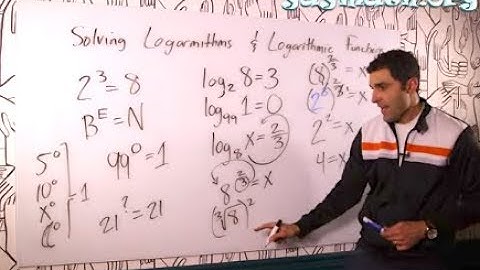 Solving Logarmithms & Logarithmic Functions
2³=8
Bᴱ=N
5⁰
10⁰
x⁰
=1
99⁰=1
21^?=21
log₂8=3
log₉₉1=0
log₈x=2/3
8^(2/3)=x
(∛8)²
(8)^(2/3)=x
2²=x
4=x